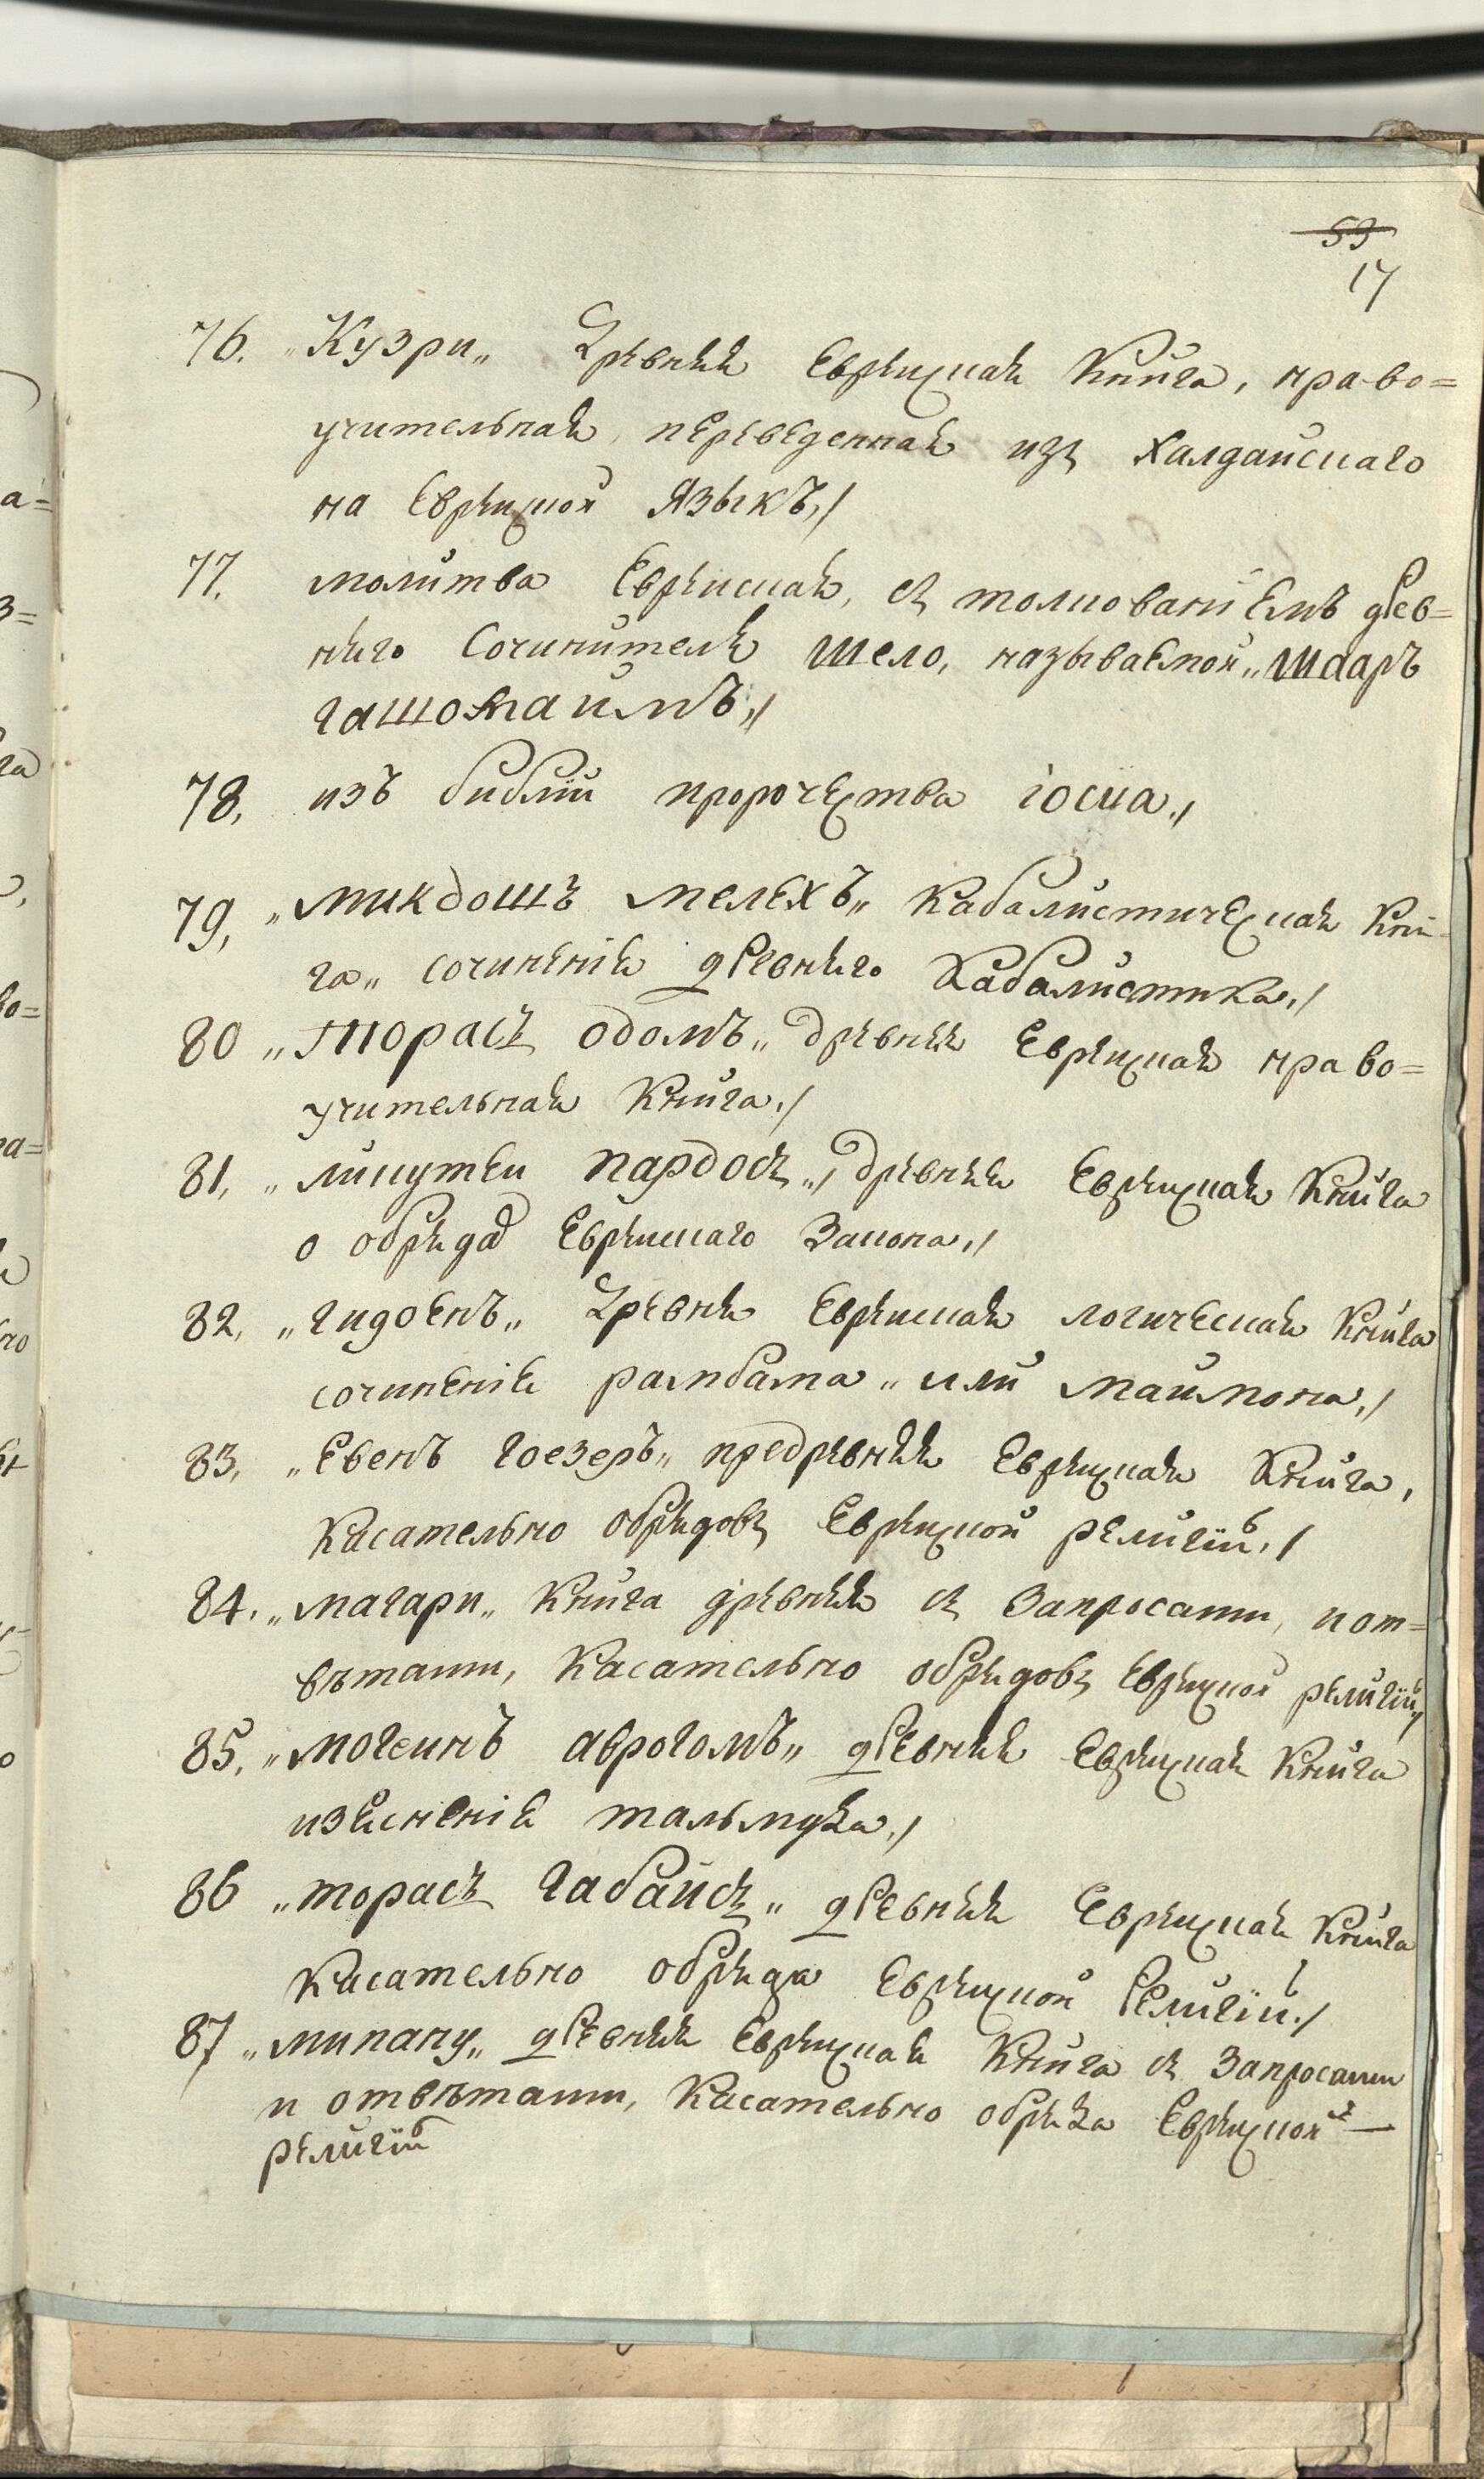 53
17
76. „Кузри„ Древняя Еврейская Книга, нраво=
учительная, переведенная изъ Халдайскаго
на Еврейской Языкъ,/
77. молитва Еврейская, съ толкованіемъ древ=
няго Сочинителя Шело, называемой „Шааръ
гашомаимъ„/
78, изъ библіи пророчества іосиа./
79, „микдошъ мелехъ„ Кабалистическая Кни=
га„ сочиненія древняго Кабалистика,/
80 „торасъ одомъ„ древняя Еврейская нраво=
учительная Книга,/
81, „ликутеи пардосъ„/ древняя Еврейская Книга
о обряда Еврейскаго Закона,/
82, „гидоенъ„ Древня Еврейская логическая Книга
сочиненія рамбама„ или маймона,/
83, „Евенъ гоезеръ„ предревняя Еврейская Книга,
Касательно обрядовъ Еврейской религіи,/
84. „магари„ Книга древняя съ Запросами, иот=
вѣтами, Касательно обрядовъ Еврейской религіи,/
85, „могеинъ аврогомъ„ древняя Еврейская Книга
изясненія тальмуда,/
86 „торасъ габайсъ„ древняя Еврейская Книга
Касательно обряда Еврейской Религіи,/
87 „минану„ древняя Еврейская Книга съ Запросами
и отвѣтами, Касательно обряда Еврейской —
религіи